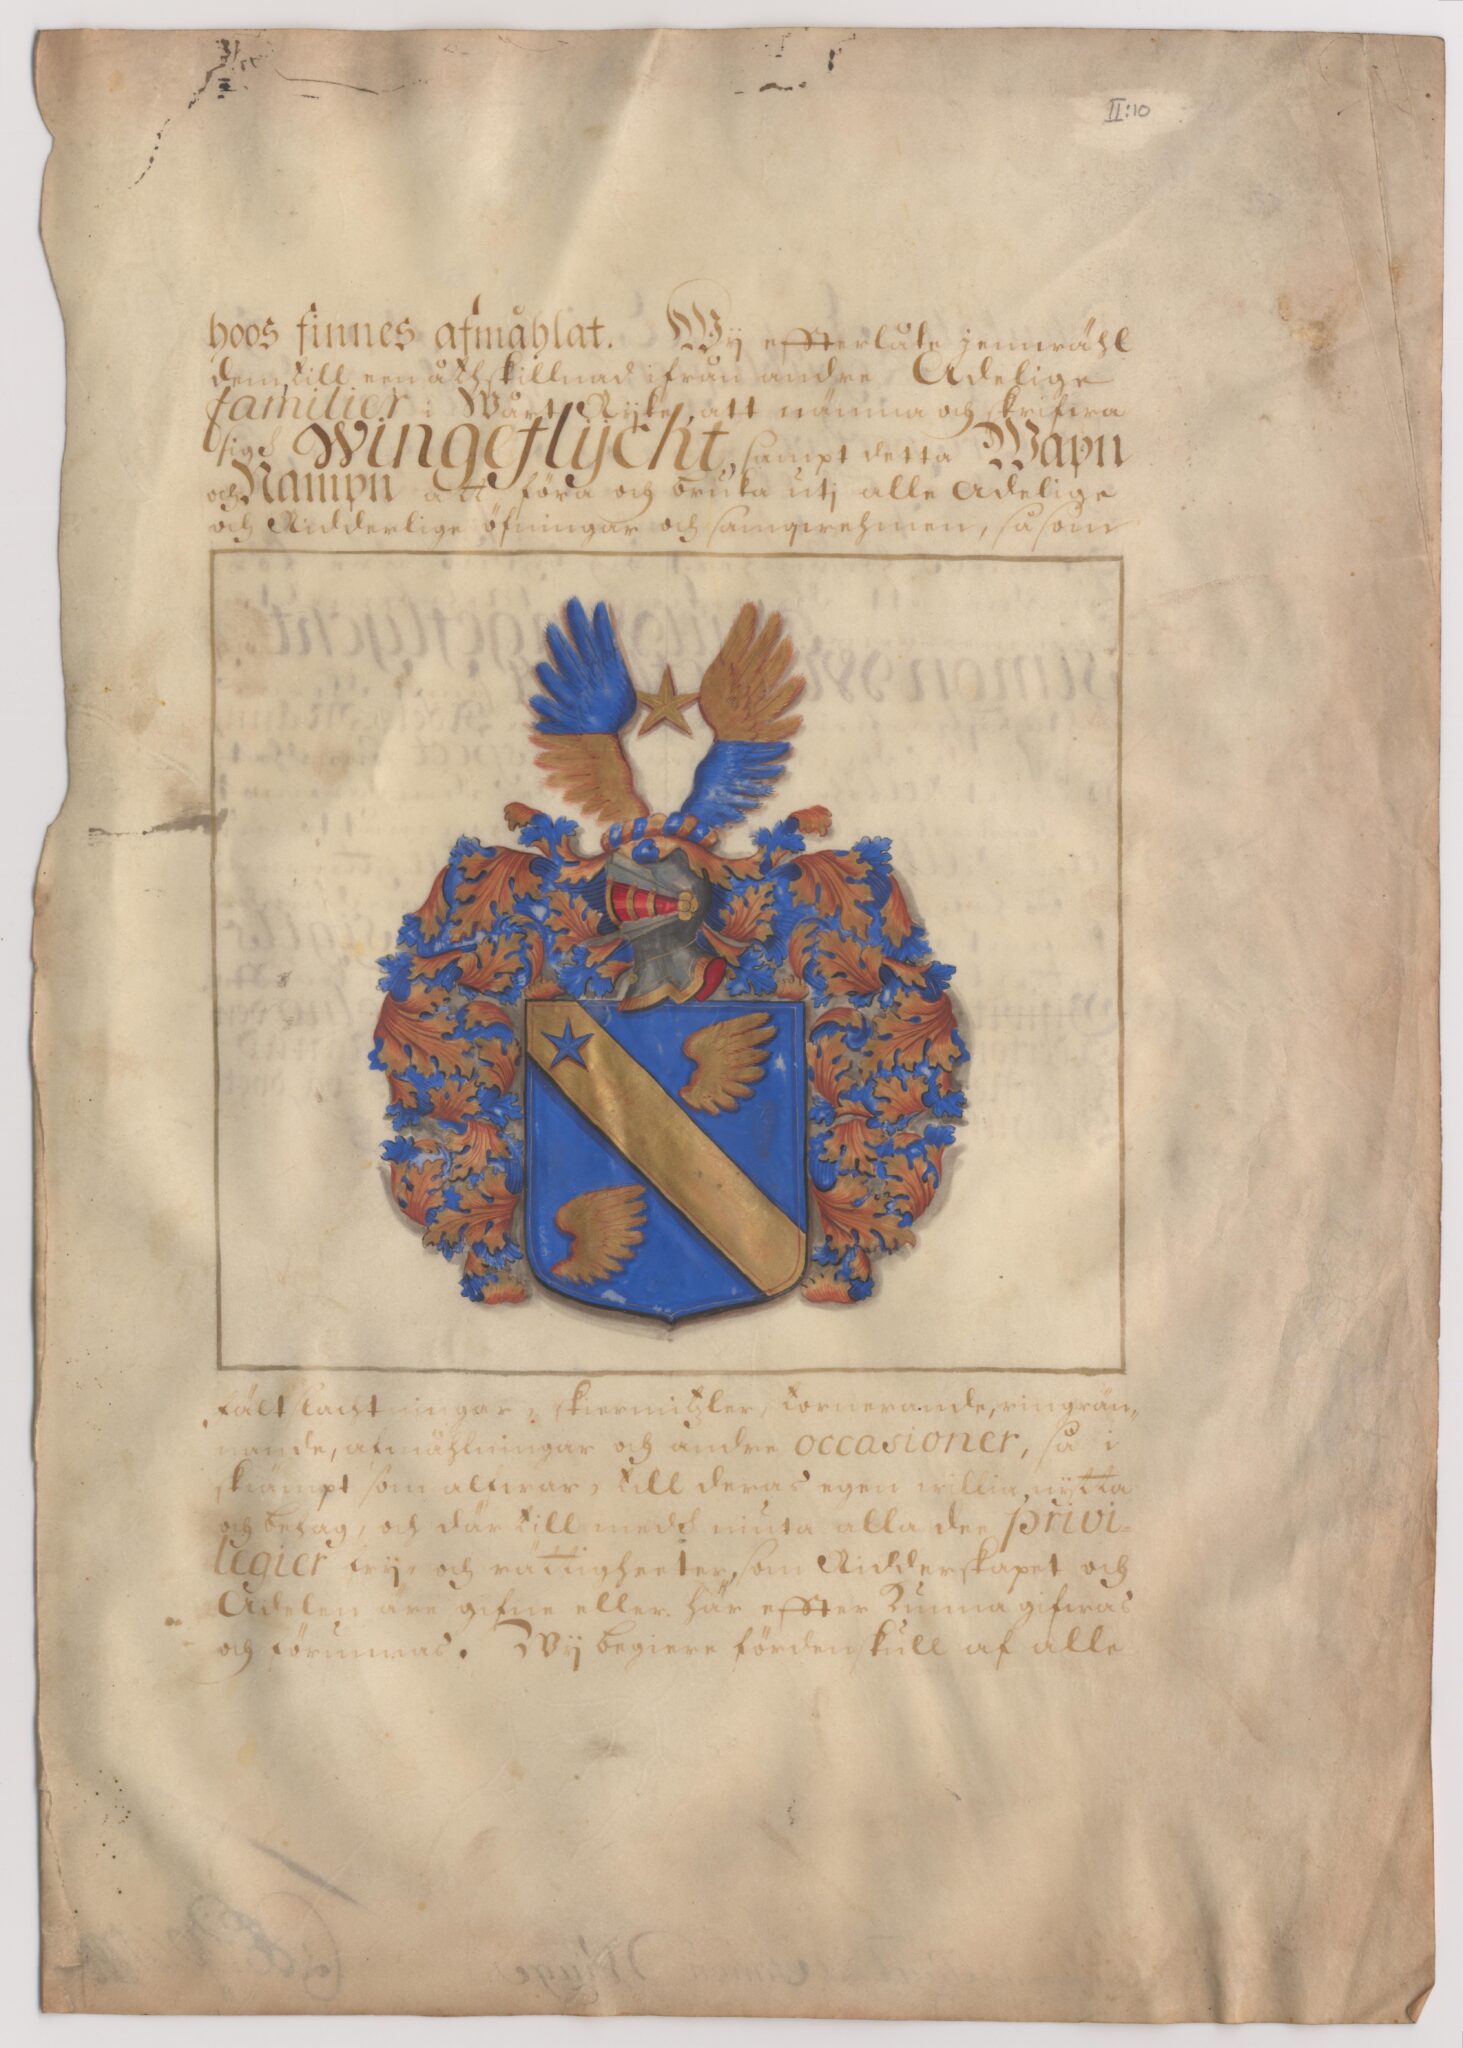 II:10
hoos finnes afmåhlat. Wy effterlåte jemwähl
dem till een åthskillnad ifrån andre Adelige
familier i Wårt Rijke, att nämna och skrifwa
sigh Wingeflycht, sampt detta Wapn
och Nampn att föra och bruka utj alle Adelige
och Ridderlige öfningar och samqwehmen, så som
fältslachtningar, skiermitzler, tornerande, ringrän„
nande, afmåhlningar och andre occasioner, så i
skiämpt som alfwar, till deras egen willia, nytta
och behag, och där till medh niuta alla dee privi-
legier fry- och rättigheeter, som Ridderskapet och
Adelen äre gifne eller här effter kunna gifwas
och förunnas. Wy begiere fördenskull af alle